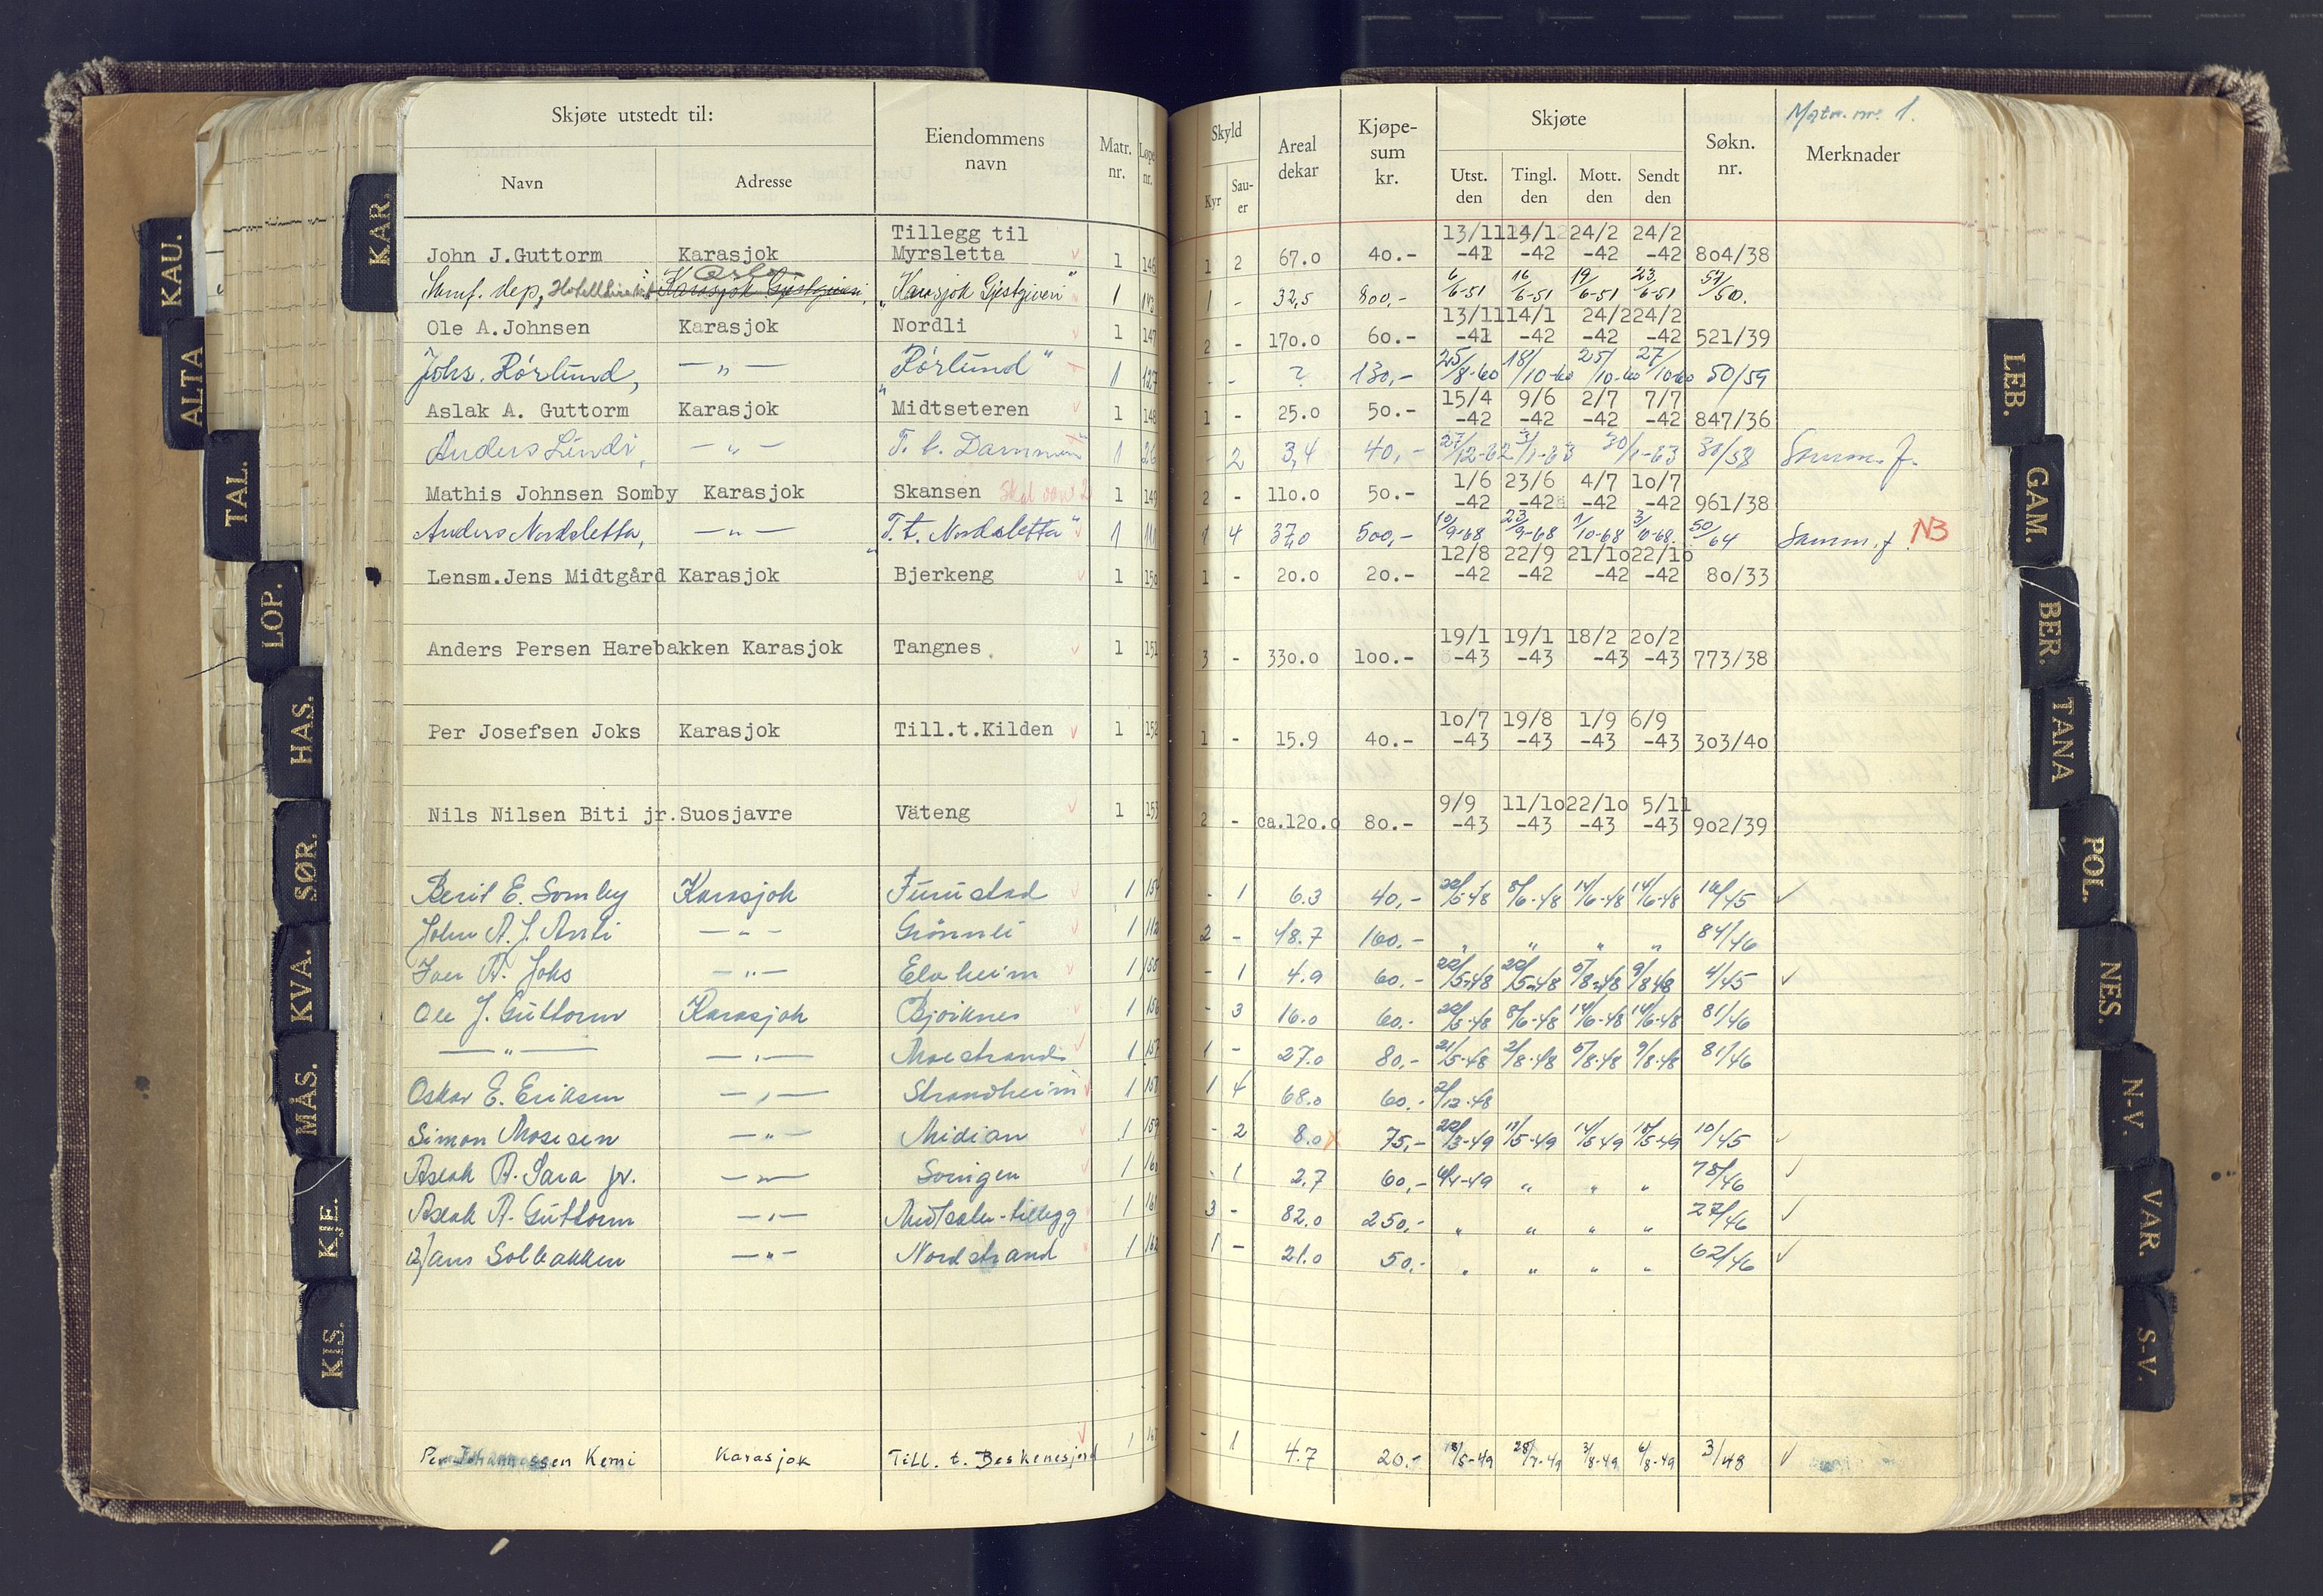 KAU.
ALTA
TAL.
LOP.
HAS.
SØR.
KVA.
MÅS.
KJE.
KIS.
KAR.
Skjøte utstedt til: Eiendommens navn Matr. nr. Løpe nr.
Navn Adresse
Skyld Areal dekar Kjøpe- sum kr. Skjøte Søkn. nr. Merknader
Matr. nr. 1.
Kyr Sau- er Utst. den Tingl. den Mott. den Sendt den
Tillegg til 13/11 14/1 24/2 24/2
John J.Guttorm Karasjok Myrsletta 1 146 1 2 67.0 40.- -41 -42 -42 -42 804/38
Samf. dep., Oslo Karasjok Gjestgiveri, "Karasjok Gjestgiveri" 1 143 1 - 32,5 800,- 6/6-51 16/6-51 19/6-51 23/6-51 57/50.
13/11 14/1 24/2 24/2
Ole A.Johnsen Karasjok Nordli 1 147 2 - 170.0 60.- -41 -42 -42 -42 521/39
Johs. Rörlund, — " — "Rörlund" 1 127 - - ? 130,- 25/8-60 18/10-60 25/10-60 27/10-60 50/59
15/4 9/6 2/7 7/7
Aslak A. Guttorm Karasjok Midtseteren 1 148 1 - 25.0 50.- -42 -42 -42 -42 847/36
Anders Lindi, — " — T. t. Dammen" 1 26 - 2 3,4 40,- 27/12-62 3/1-63 30/1-63 30/58 Samm. f.
1/6 23/6 4/7 10/7
Mathis Johnsen Somby Karasjok Skansen 1 149 2 - 110.0 50.- -42 -42 -42 -42 961/38
Anders Nordsletta, — " — "T. t. Nordsletta" 1 111 1 4 37,0 500,- 10/9-68 23/9-68 1/10-68 3/10-68. 50/64 Samm. f. NB
12/8 22/9 21/10 22/10
Lensm.Jens Midtgård Karasjok Bjerkeng 1 150 1 - 20.0 20.- -42 -42 -42 -42 80/33
19/1 19/1 18/2 20/2
Anders Persen Harebakken Karasjok Tangnes. 1 151 3 - 330.0 100.- -43 -43 -43 -43 773/38
10/7 19/8 1/9 6/9
Per Josefsen Joks Karasjok Till.t.Kilden 1 152 1 - 15.9 40.- -43 -43 -43 -43 303/40
9/9 11/10 22/10 5/11
Nils Nilsen Biti jr. Suosjavre Väteng 1 153 2 - ca.120.0 80.- -43 -43 -43 -43 902/39
Berit E. Somby Karasjok Furustad 1 154 - 1 6.3 40,- 20/5-48 8/6-48 14/6-48 14/6-48 16/45 ✓
John A. J. Anti — " — Grönnli 1 112 2 - 48.7 160.- " " " " 84/46
Iver A. Joks — " — Elvheim 1 155 - 1 4.9 60.- 22/5-48 20/5-48 5/8-48 9/8 48 4/45 ✓
Ole J. Guttorm Karasjok Bjørknes 1 156 - 3 16.0 60.- 20/5-48 8/6-48 14/6-48 14/6-48 81/46
— " — — " — Moestrand 1 157 1 - 27.0 80,- 21/5-48 2/8-48 5/8-48 9/8-48 81/46
Oskar E. Eriksen — " — Strandheim 1 158 1 4 68.0 60.- 2/12-48
Simon Mosesen — " — Midian 1 159 - 2 8.0 75,- 22/3-49 11/5-49 14/5 49 18/5-49 10/45 ✓
Aslak A. Sara jr. — " — Svingen 1 160 - 1 2.7 60,- 4/4-49 " " " 78/46 ✓
Aslak A. Guttorm — " — Midtseter-tillegg 1 161 3 - 82.0 250,- " " " " 27/46 ✓
Hans Solbakken — " — Nordstrand 1 162 1 - 21.0 50.- " " " " 62/46 ✓
Per Johannessen Kemi Karasjok Till. t. Beskenesjord 1 - 1 4.7 20.- 18/5-49 28/7-49 3/8-49 6/8-49 3/48 ✓
LEB.
GAM.
BER.
TANA
POL.
NES.
N-V.
VAR.
S-V.